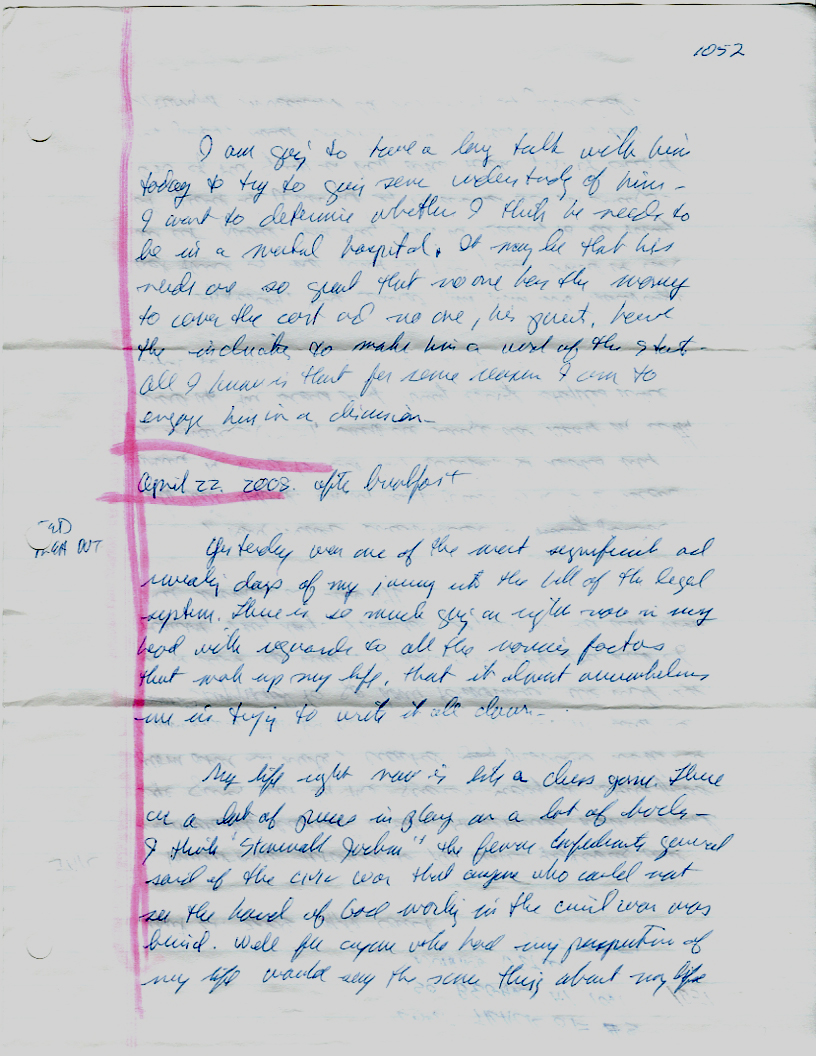 1052
I am going to have a long talk with him
today to try to gain some understandg of him -
I want to determine whether I think he needs to
be in a mental hospital. It may be that his
needs are so great that no one has the money
to cover the cost ad no one, his parents, have
the to make him a ward of the state -
All I know is that for some reason I am to
engage him in a discussion -
April 22 2008. after breakfast
OUT
Yesterday was one of the most significant ad
days of my journey into the of the legal
system. There is so much going on right now in my
head with reguards to all the various factors
that make up my life, that it almost overwhelms
me in trying to write it all down -
My life right now is like a chess game. There
are a lot of pieces in play on a lot of -
I think "Stonewall Jackson" the famous Confederate general
said of the civil war that anyone who could not
see the hand of God working in the civil war was
blind. Well for anyone who had my perspective of
my life would say the same thing about my life